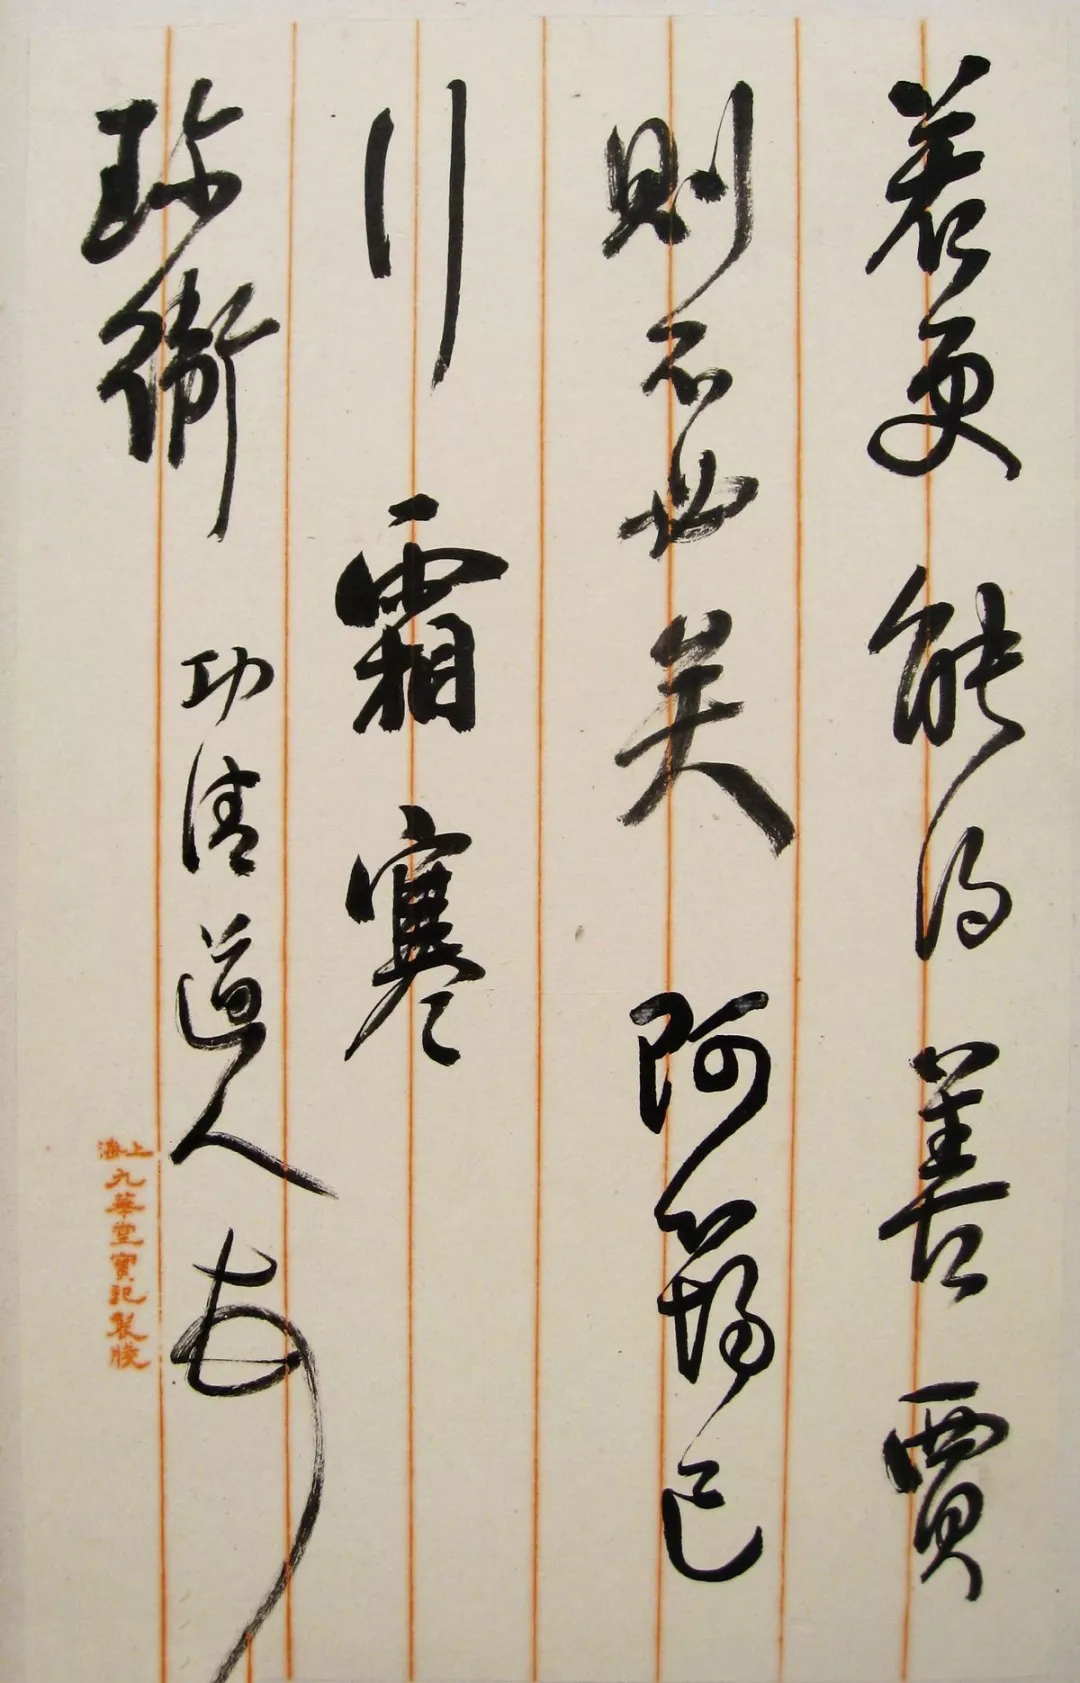 若更能得善賈
則不必矣 阿 已
行 霜寒
珍衛 功清道人
上海九華堂寶記製牋